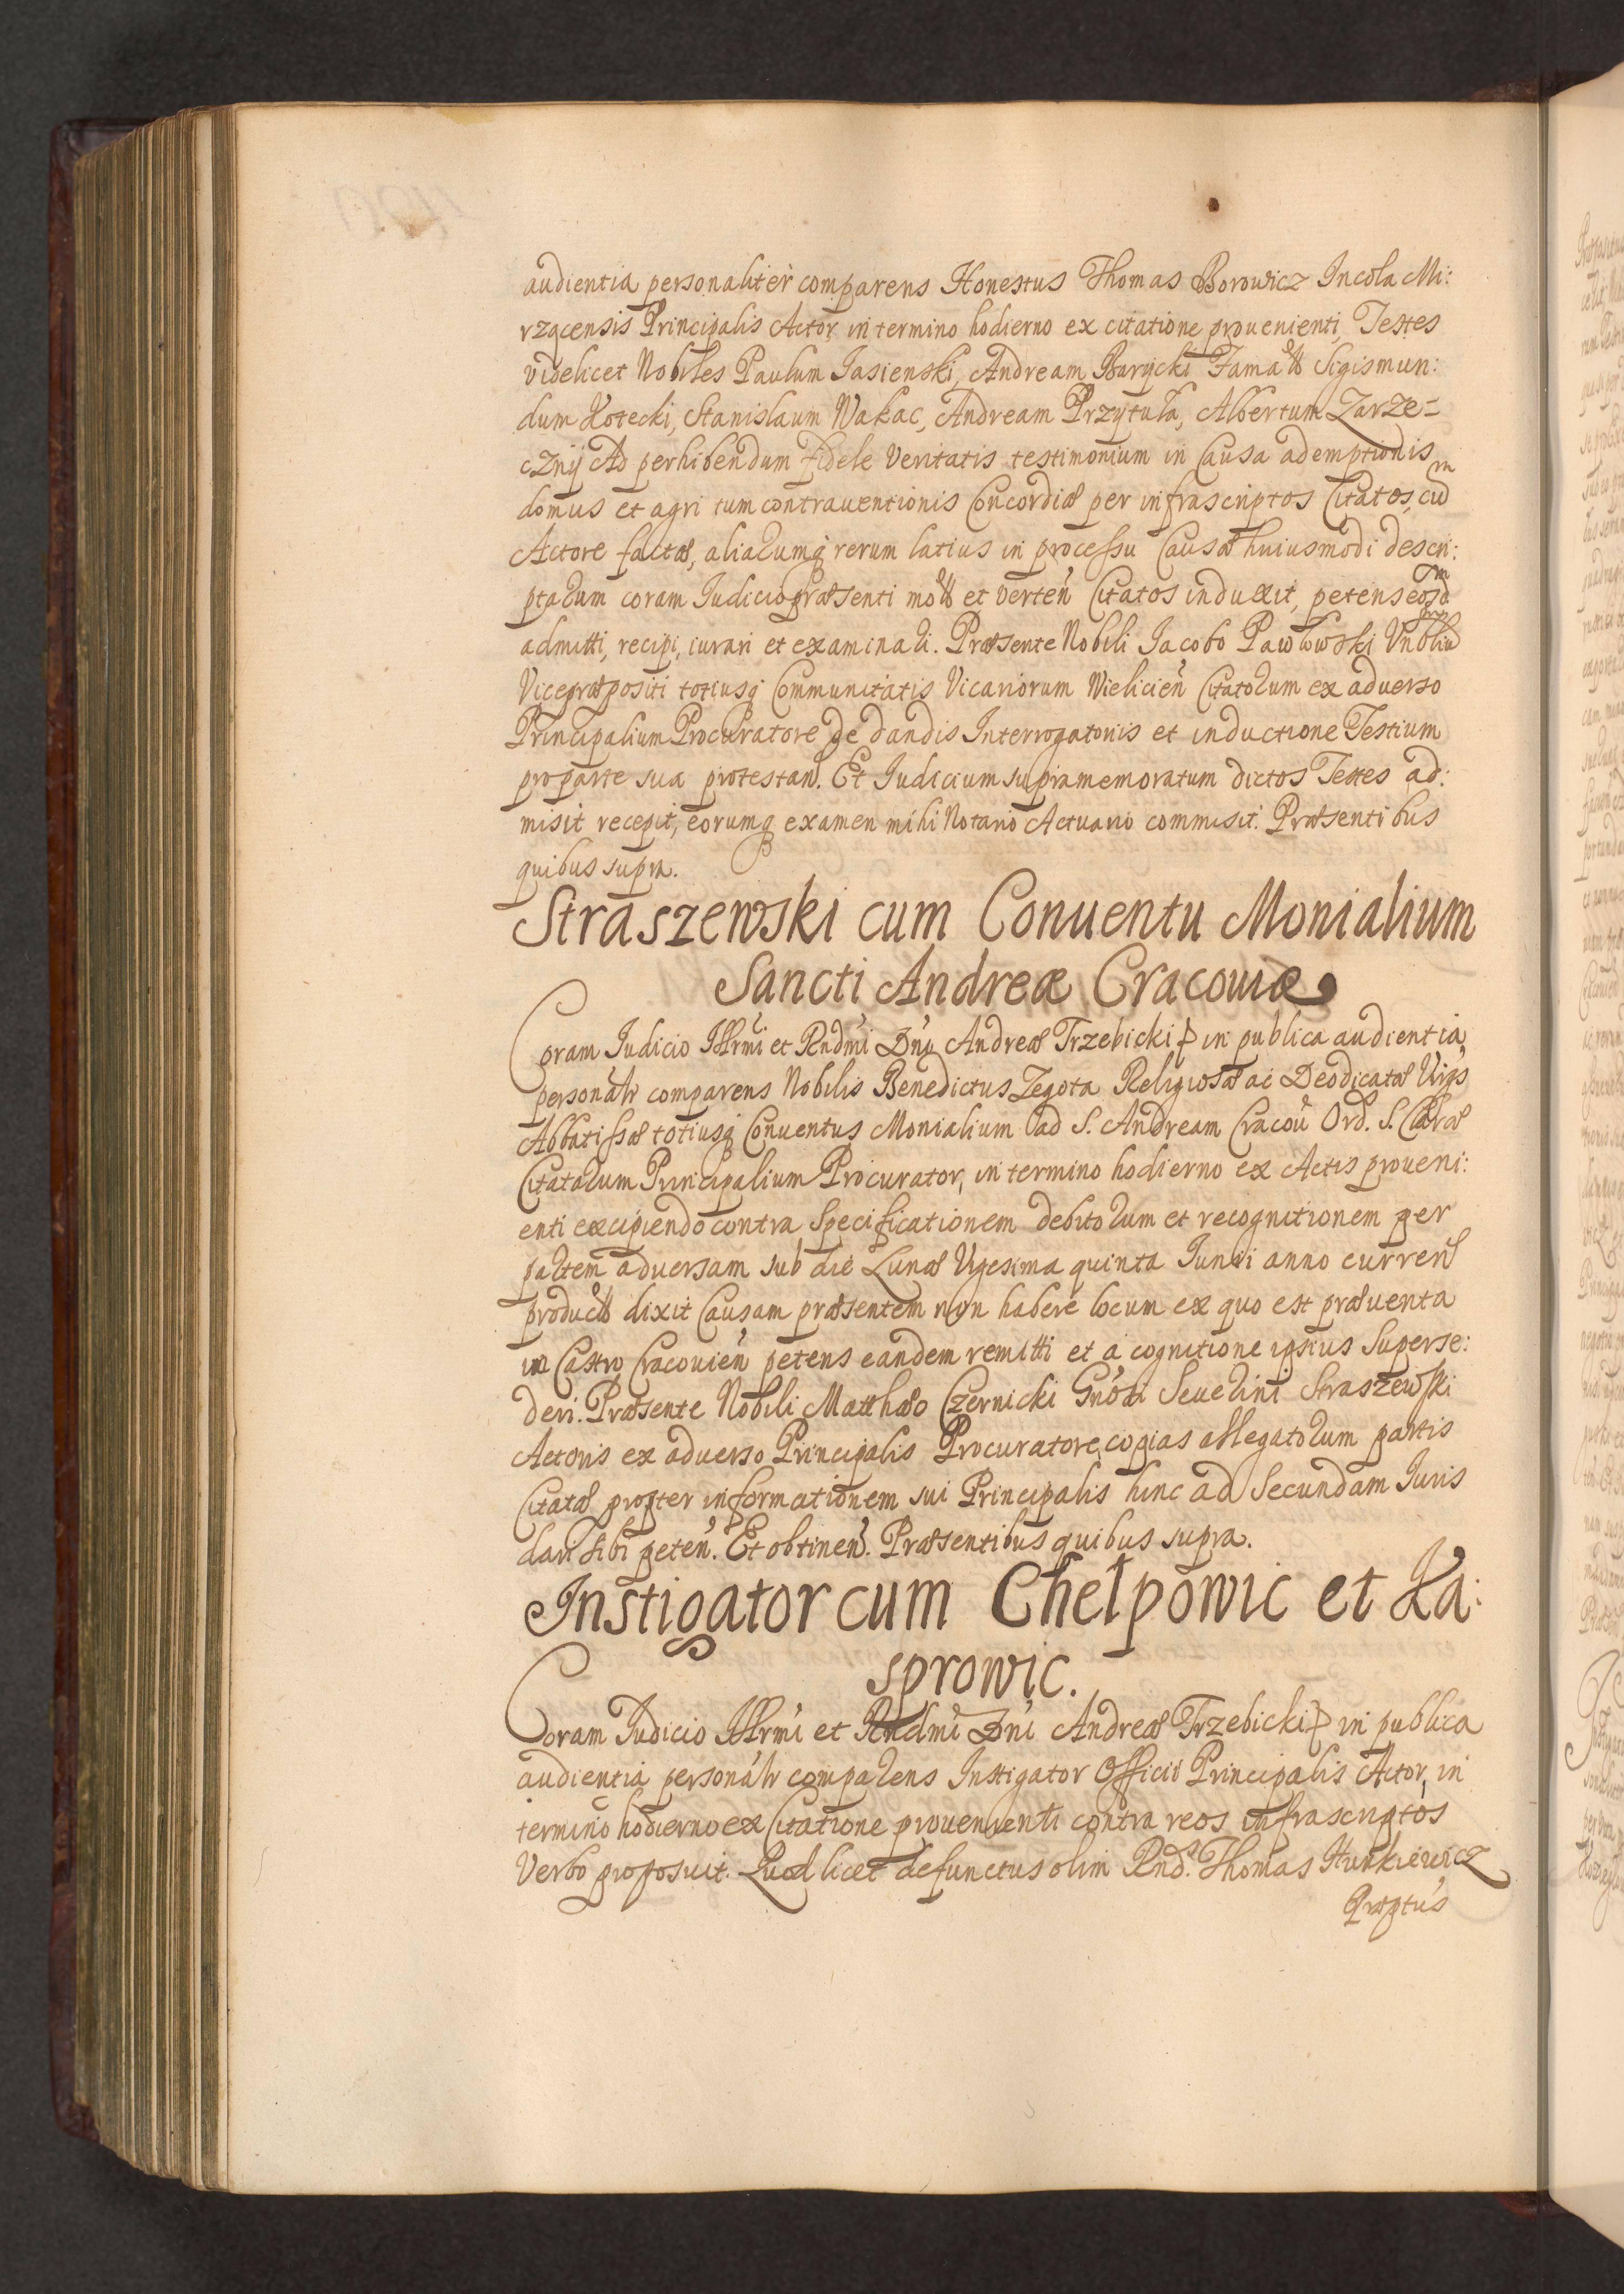 audientia personaliter comparens Honestus Thomas Borowicz Incola Mi:
rzęcensis Principalis Actor, in termino hodierno ex citatione prouenienti, Testes
videlicet Nobiles Paulum Jasienski, Andream Burycki Sigismun:
dum Kotecki, Stanislaum Wakac, Andream Przytuła, Albertum Zarze=
cznÿ Ad perhibendum fidele Veritatis testimonium in Causa ademptionis
domus et agri tum contrauentionis Concordiæ per infrascriptos Citatos, cu͞m
Actore factæ, aliarumq rerum latius in processu Causæ huiusmodi descri:
ptarum coram Iudicio præsenti et verteń Citatos induxit, petens eosd͞m
admitti, recipi, iurari et examinari. Præsente Nobili Jacobo Pawłowski
Vicepræpositi totiusq Communitatis Vicariorum Wielicień Citatorum ex aduerso
Principalium Procuratore de dandis Interrogatoriis et inductione Testium
pro parte sua protestań. Et Iudicium supramemoratum dictos Testes ad:
misit recepit, eorumq examen mihi Notario Actuario commisit. Præsentibus
quibus supra.
Straszewski cum Conuentu Monialium
Sancti Andreæ Cracouiæ
Coram Judicio Illr͞mi et Rnd͞mi Dn͞i Andreæ Trzebicki in publica audientia,
person͞alr comparens Nobilis Benedictus Zegota Religiosæ ac Deodicatæ Virg͞s
Abbatissæ totiusq Conuentus Monialium ad S. Andream Cracou͞ Ord. S. Claræ
Citatarum Principalium Procurator, in termino hodierno ex Actis proueni:
enti excipiendo contra Specificationem debitorum et recognitionem per
partem aduersam sub die Lunæ Vigesima quinta Junii anno curreń
dixit Causam præsentem non habere locum ex quo est præuenta
in Castro Cracouień petens eandem remitti et a cognitione ipsius Superse:
deri. Præsente Nobili Matthæo Czernicki Gn͞osi Seuerini Straszewski
Actoris ex aduerso Principalis Procuratore, copias allegatorum partis
Citatæ propter informationem sui Principalis hinc ad Secundam Iuris
dari sibi peteń. Et obtineń. Præsentibus quibus supra.
Instigator cum Chełpowic et Ka:
sprowic.
Coram Iudicio Illr͞mi et Rnd͞mi Dn͞i Andreæ Trzebicki in publica
audientia person͞alr comparens Instigator Officii Principalis Actor, in
termino hodierno ex Citatione prouenienti contra reos infrascriptos
Verbo proposuit. Quod licet defunctus olim Rnd. Thomas Hunkiewicz
Præptus